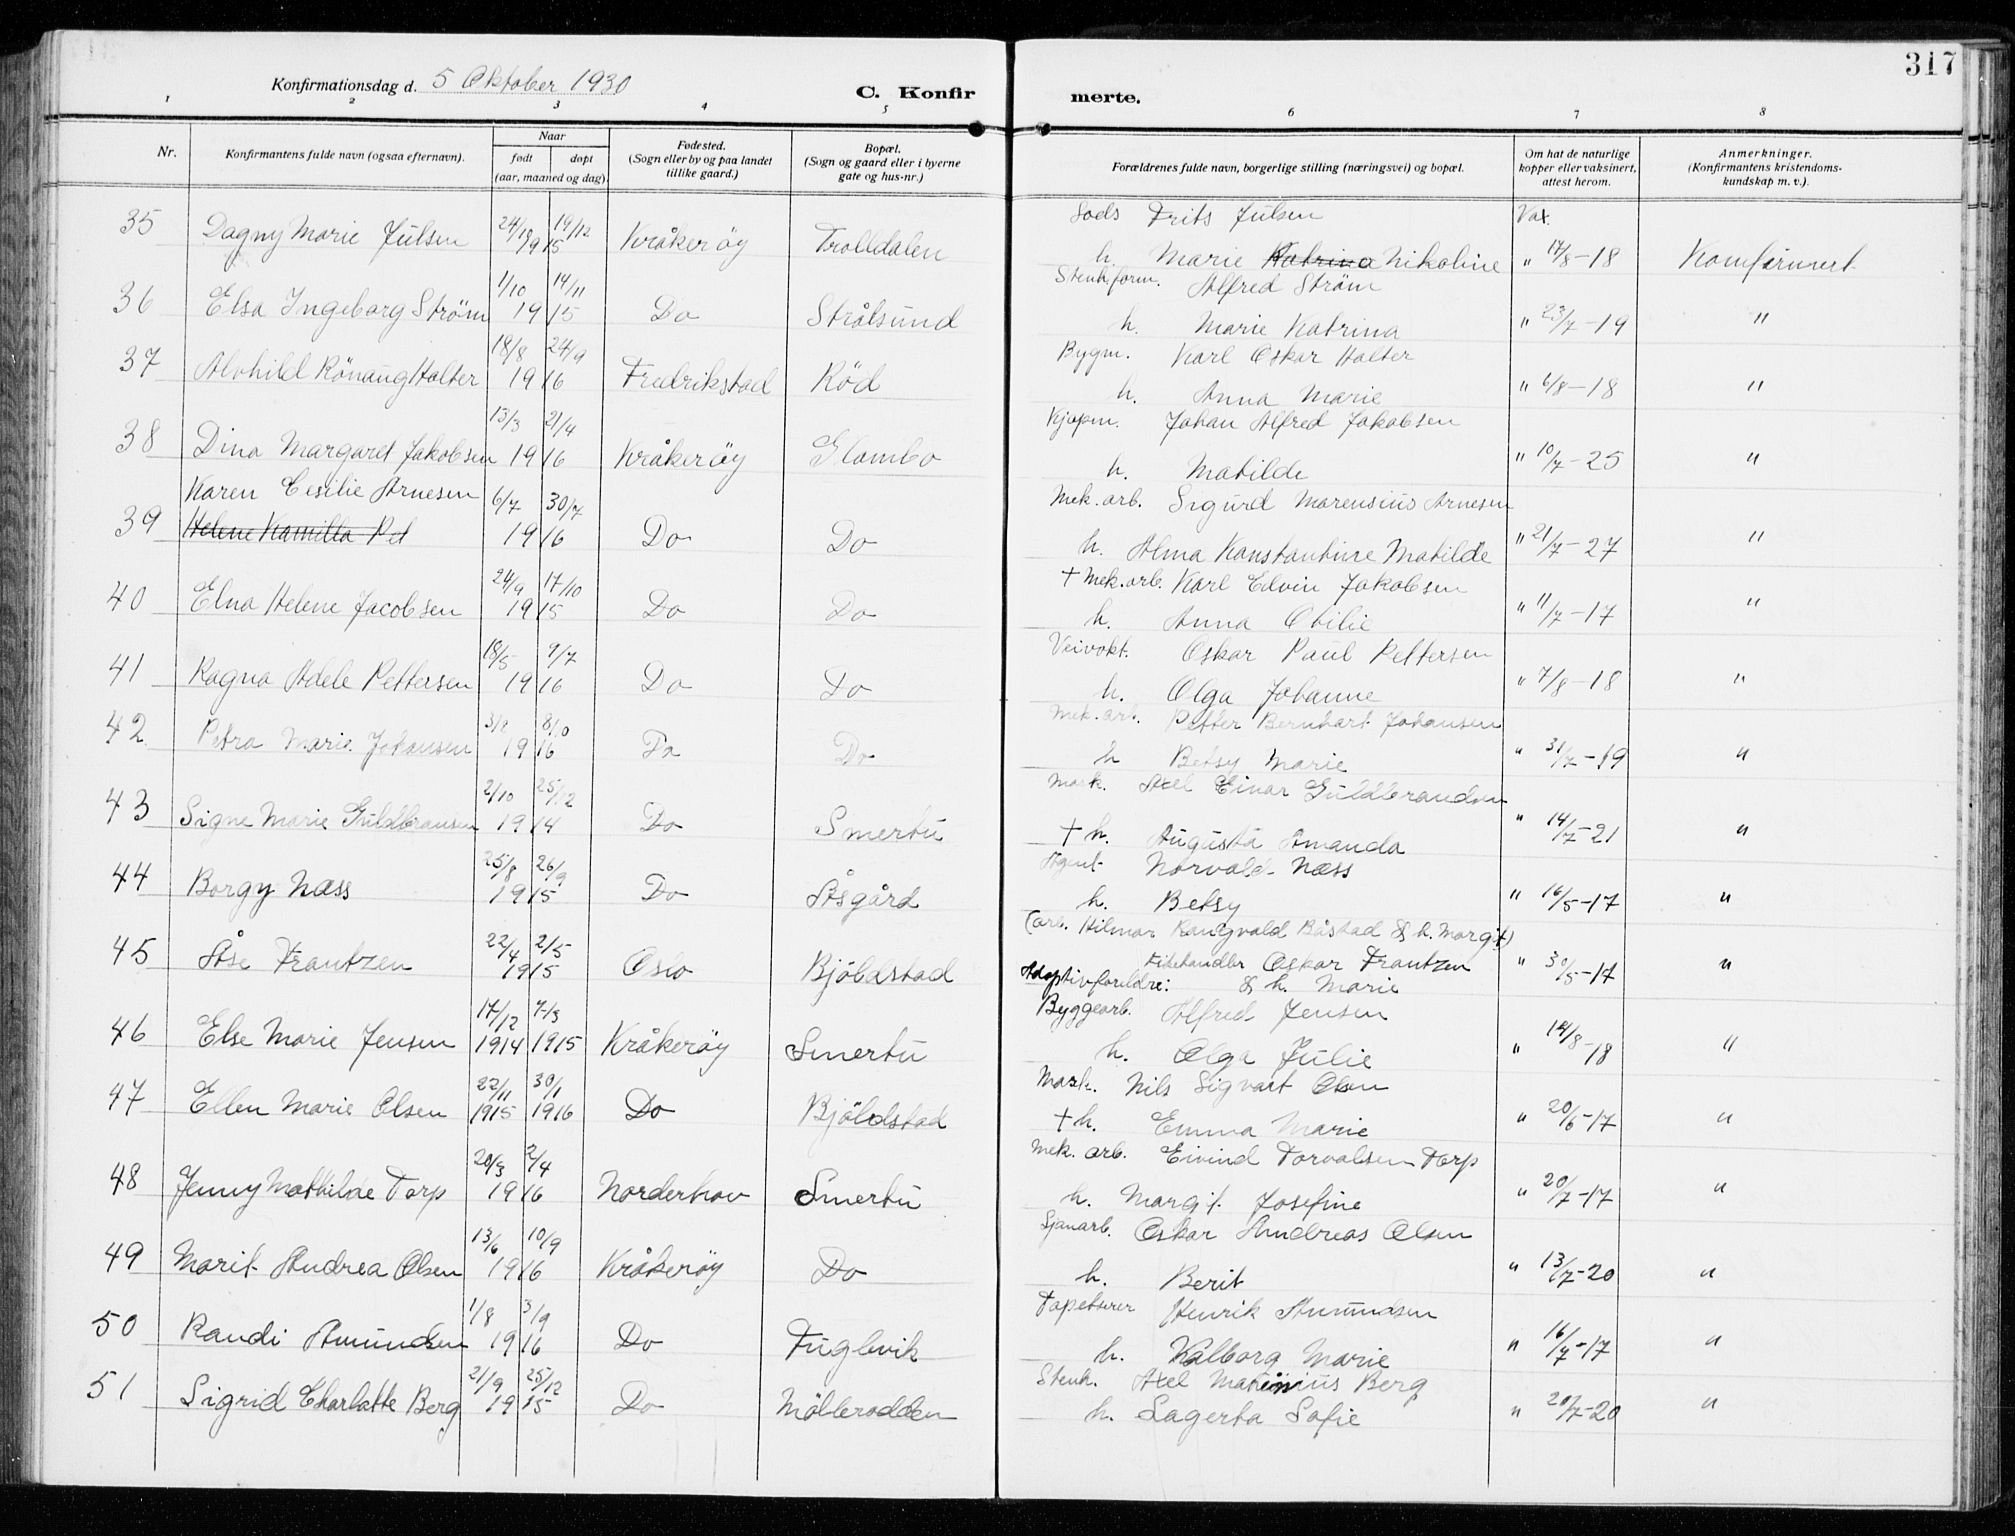 317
Konfirmationsdag d. 5 Oktober 1930
C. Konfirmerte.
1 2 3 4 5 6 7 8
Nr. | Konfirmantens fulde navn (ogsaa efternavn). | Naar født døpt (aar, maaned og dag). | Fødested. (Sogn eller by og paa landet tillike gaard.) | Bopæl. (Sogn og gaard eller i byerne gate og hus-nr.) | Forældrenes fulde navn, borgerlige stilling (næringsvei) og bopæl. | Om hat de naturlige kopper eller vaksinert, attest herom. | Anmerkninger. (Konfirmantens kristendoms-kundskap m. v.).
Frits Julsen Vax.
35 Dagny Marie Julsen 24/10 19/12 1915 Kråkerøy Trolldalen h. Marie Katrina Nikoline " 17/8-18 Konfirmert
Stenh.form. Alfred Strøm
36 Elsa Ingeborg Strøm 1/10 14/11 1915 Do Strålsund h. Marie Katrina " 23/7-19 "
Bygm. Karl Oskar Holter
37 Alvhild Rönaug Holter 18/8 24/9 1916 Fredrikstad Röd h. Anna Marie " 6/8-18 "
Kjøpm. Johan Alfred Jakobsen
38 Dina Margaret Jakobsen 13/3 21/4 1916 Kråkerøy Glombo h. Matilde " 10/7-25 "
Karen Cesilie Arnesen Mek. arb. Sigurd Marensius Arnesen
39 Helene Kamilla Pet 6/7 30/7 1916 Do Do h. Alma Konstantine Matilde " 21/7-27 "
† Mek. arb. Karl Edvin Jakobsen
40 Elna Helene Jacobsen 24/9 17/10 1915 Do Do h. Anna Otilie " 11/7-17 "
Veivokt. Oskar Paul Pettersen
41 Ragna Adele Pettersen 18/5 9/7 1916 Do Do h. Olga Johanne " 7/8-18 "
Mek. arb. Petter Bernhart Johansen
42 Petra Marie Johansen 8/10 1916 Do Do h Betsy Marie " 31/7-19 "
Mask. Axel Einar Guldbrandsen
43 Signe Marie Guldbransen 2/10 25/12 1914 Do Smertu † h. Augusta Amanda " 14/7-21 "
Agent Norvald Næss
44 Borgy Næss 25/8 26/9 1915 Do Åsgård h. Betsy " 16/5-17 "
(arb. Hilmar Rangvald Båstad & h. Margit)
45 Åse Frantzen 22/4 2/5 1915 Oslo Bjölstad Fiskehandler Oskar Frantzen " 30/5-17 "
Adoptivforeldre: & h. Marie
Byggearb. Alfred Jensen
46 Else Marie Jensen 17/12 1914 7/3 1915 Kråkerøy Smertu h. Olga Julie " 14/8-18 "
Mask. Nils Sigvart Olsen
47 Ellen Marie Olsen 22/11 1915 30/1 1916 Do Bjölstad † h. Emma Marie " 20/6-17 "
Mek. arb. Eivind Torvalsen Torp
48 Jenny Mathilde Torp 20/3 2/4 1916 Norderhov Smertu h. Margit Josefine " 20/7-17 "
Oskar Andreas Olsen
49 Marit Andrea Olsen 13/6 10/9 1916 Kråkerøy Do h. Berit " 13/7-20 "
Tapetserer Henrik Amundsen
50 Randi Amundsen 1/8 3/9 1916 Do Fuglevik h. Valborg Marie " 16/7-17 "
Stenh. Axel Marinius Berg
51 Sigrid Charlotte Berg 21/9 25/12 1915 Do Möllerodden h. Lagerta Sofie " 20/7-20 "